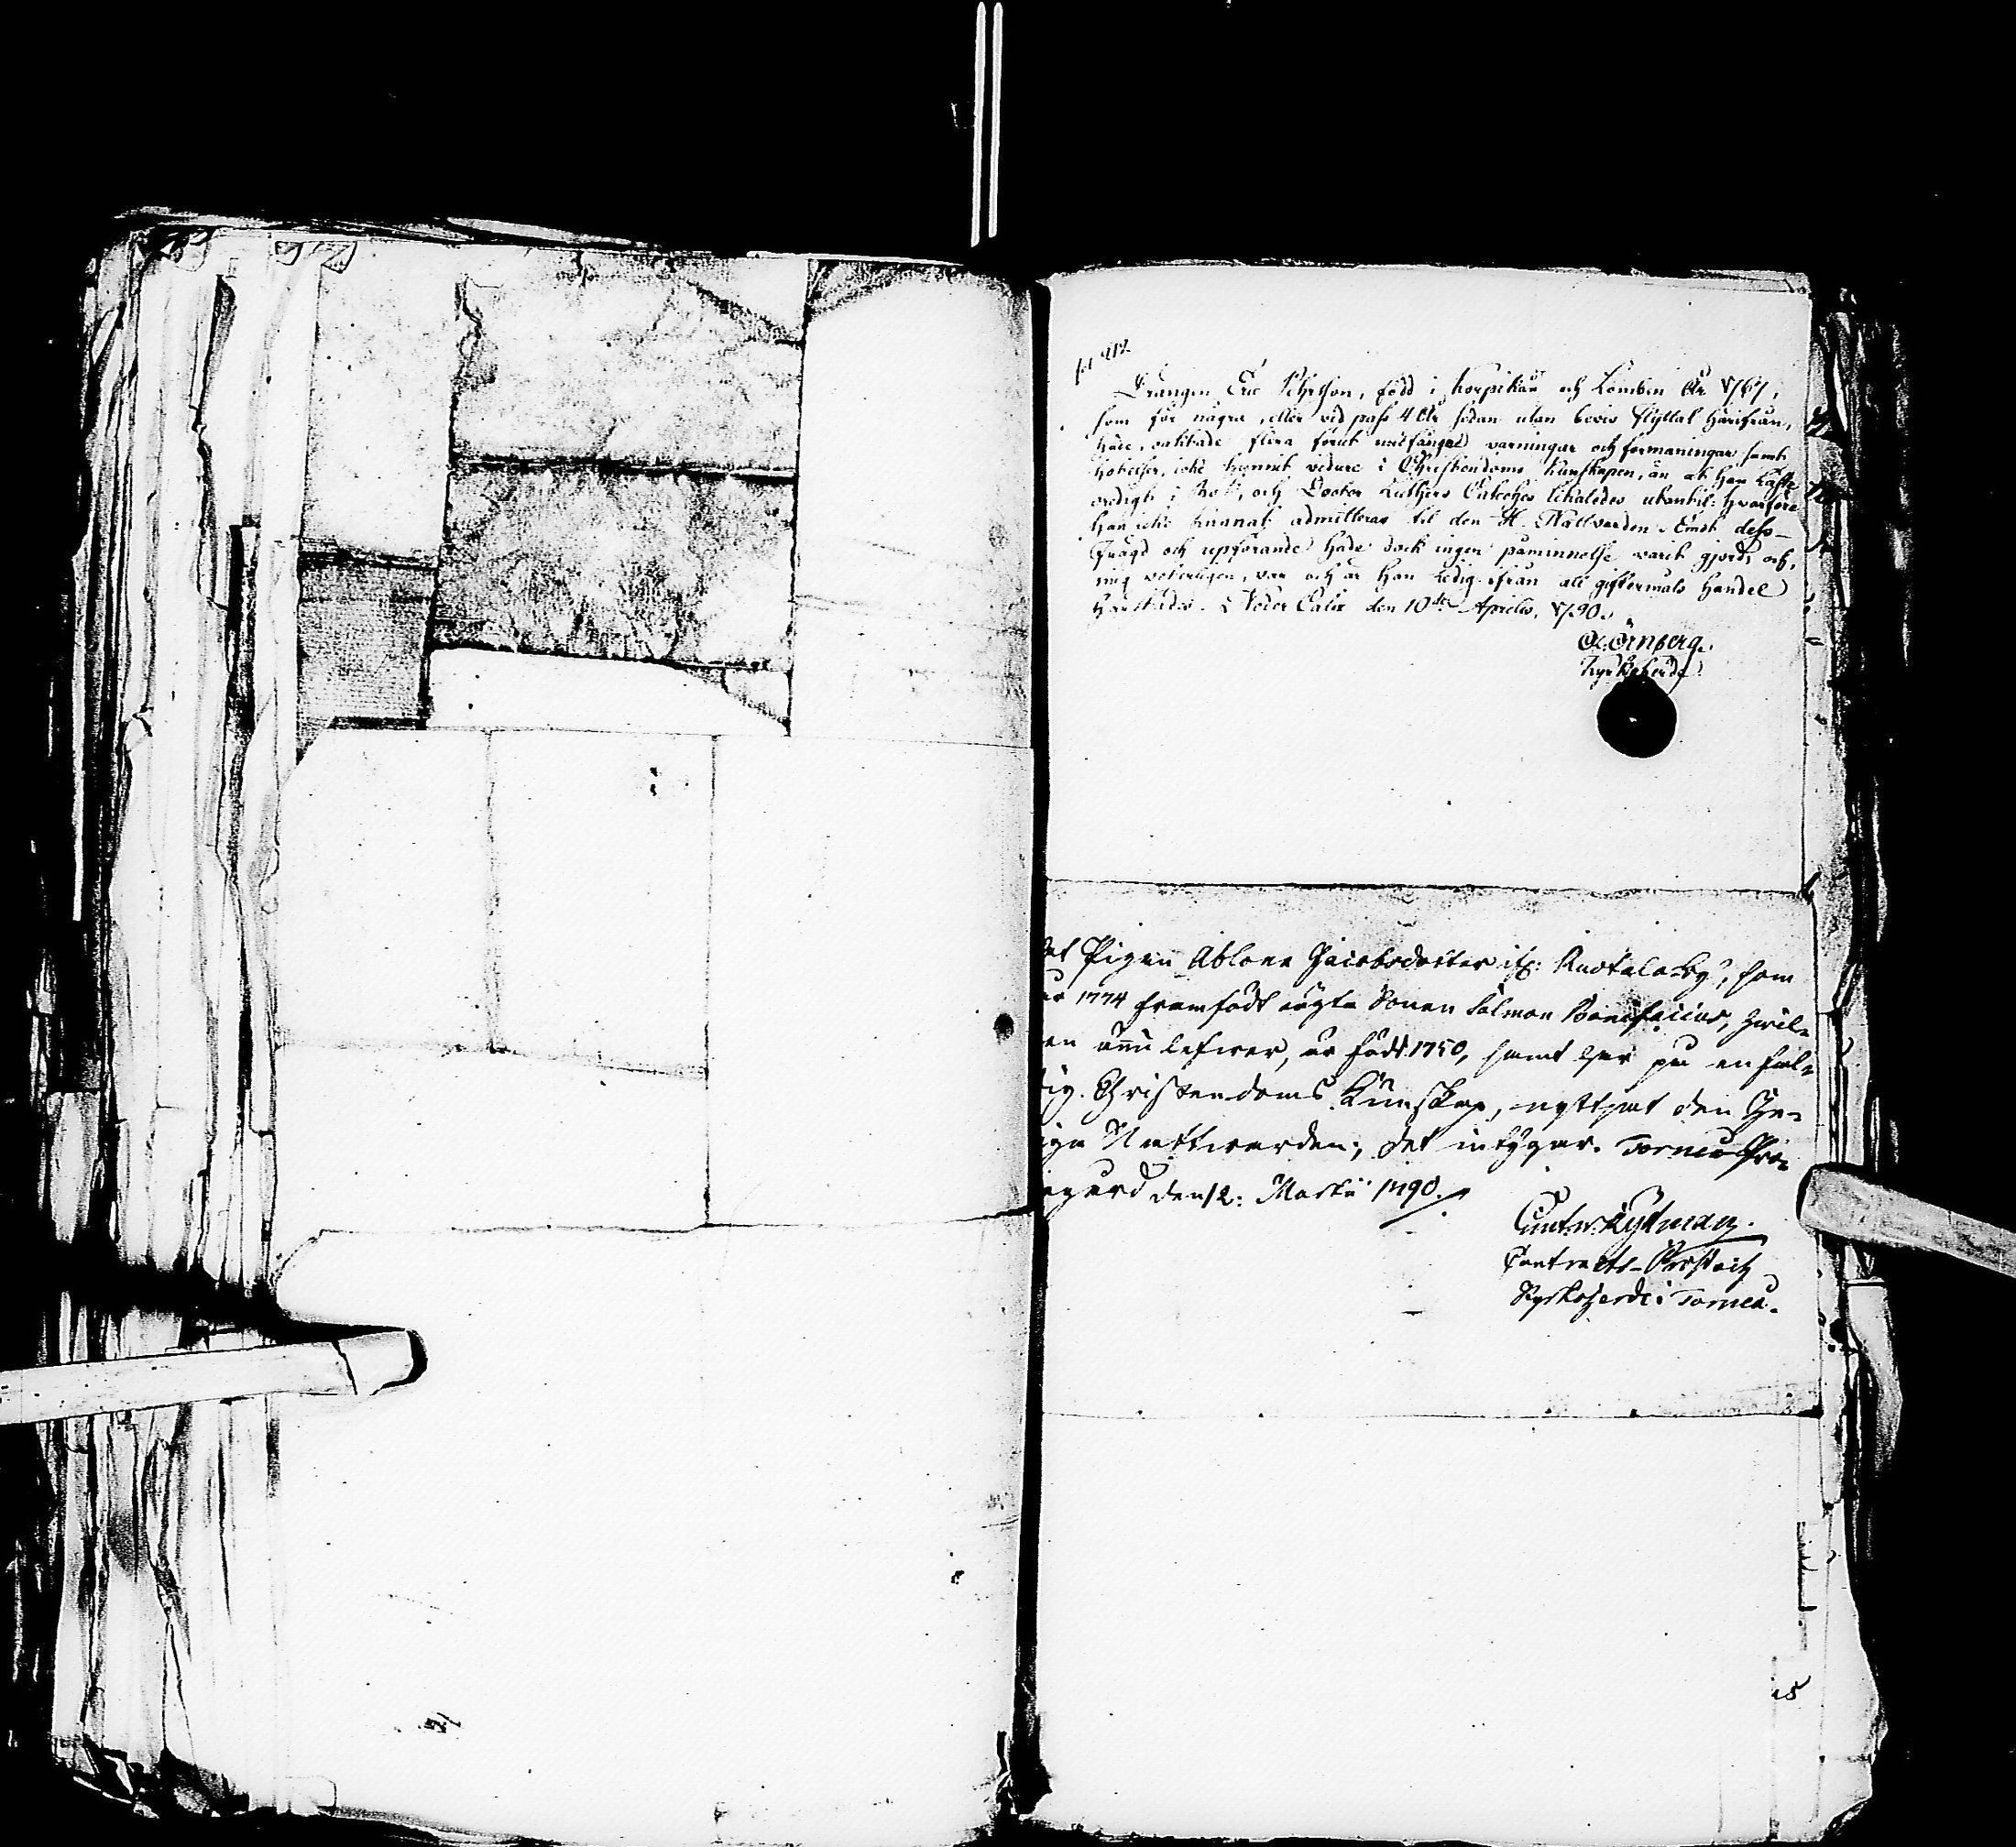 Drängen Eric Pehrson, född i Korpikån och Lomben År 1767,
som för några, eller vid pass 4 År sedan utan bevis flyttat härifrån,
hade, oaktade flera förut undfångne varningar och förmaningar samt
hotelser, icke kommit vidare i Christendoms kunskapen, än at han läste
ordigt i Bok, och Doctor Luthers Cateches likaledes utantil: hvarföre
han icke kunnat admitteras til den H. Nattvarden. Emot dess
frägd och upförande hade dock ingen påminnelse varit gjord, och,
mig veterligen, var och är han ledig ifrån alt giftermåls handel
härstädes. Neder Calix den 10de Aprilis, 1790.
Ol. Örnberg.
Kyrkoherde
at Pigan Ablona Jacobsdotter ifr: Ruotala by, som
år 1774 framfödt oägta Sonen Salmon Bonifacius, hvil-
en ännu lefver, är född 1750, samt äger på enfal-
ig Christendoms Kunskap, nyttjat den He-
iga Nattvarden; det intygar. Torneå Prä-
egård den 12: Martii 1790.
Wegelius Kyllman.
Contracts-Prost och
Kyrkoherde i Torneå.
15